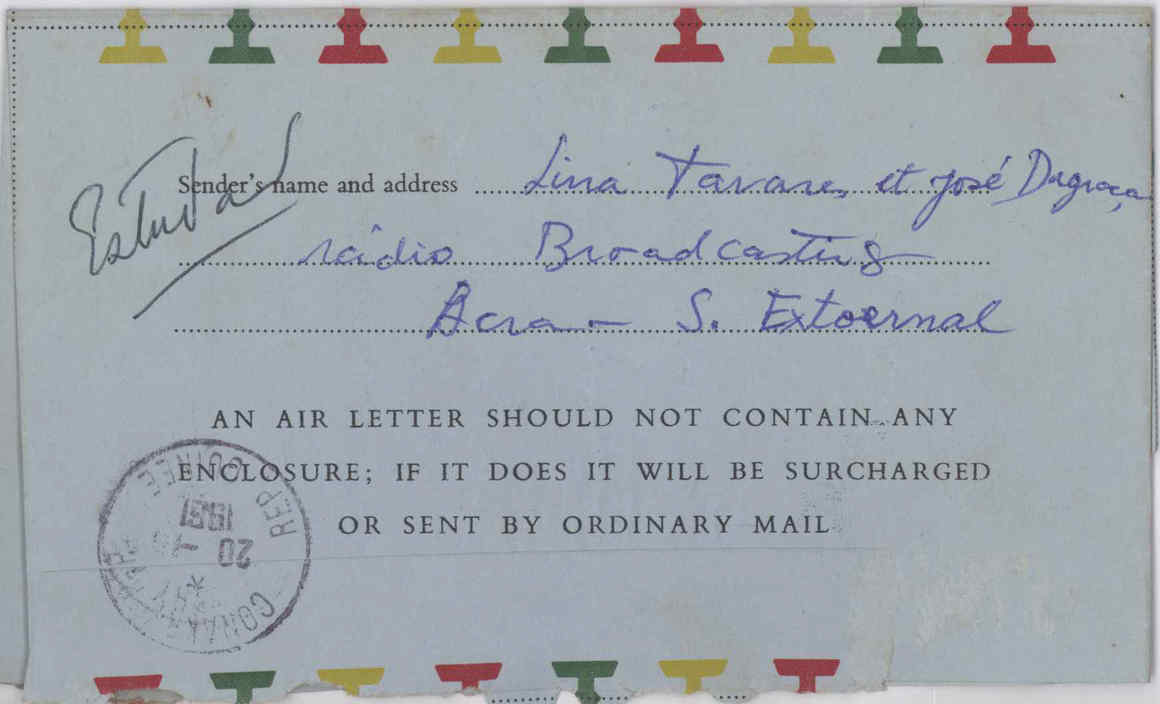 Estudar
Sender's name and address Lina Tavares et José Dagraça
rádio Broadcasting
Acra - S. Extoernal
AN AIR LETTER SHOULD NOT CONTAIN ANY
ENCLOSURE; IF IT DOES IT WILL BE SURCHARGED
OR SENT BY ORDINARY MAIL
CONAKRY RP
20 - 10
1961
REP GUINEE